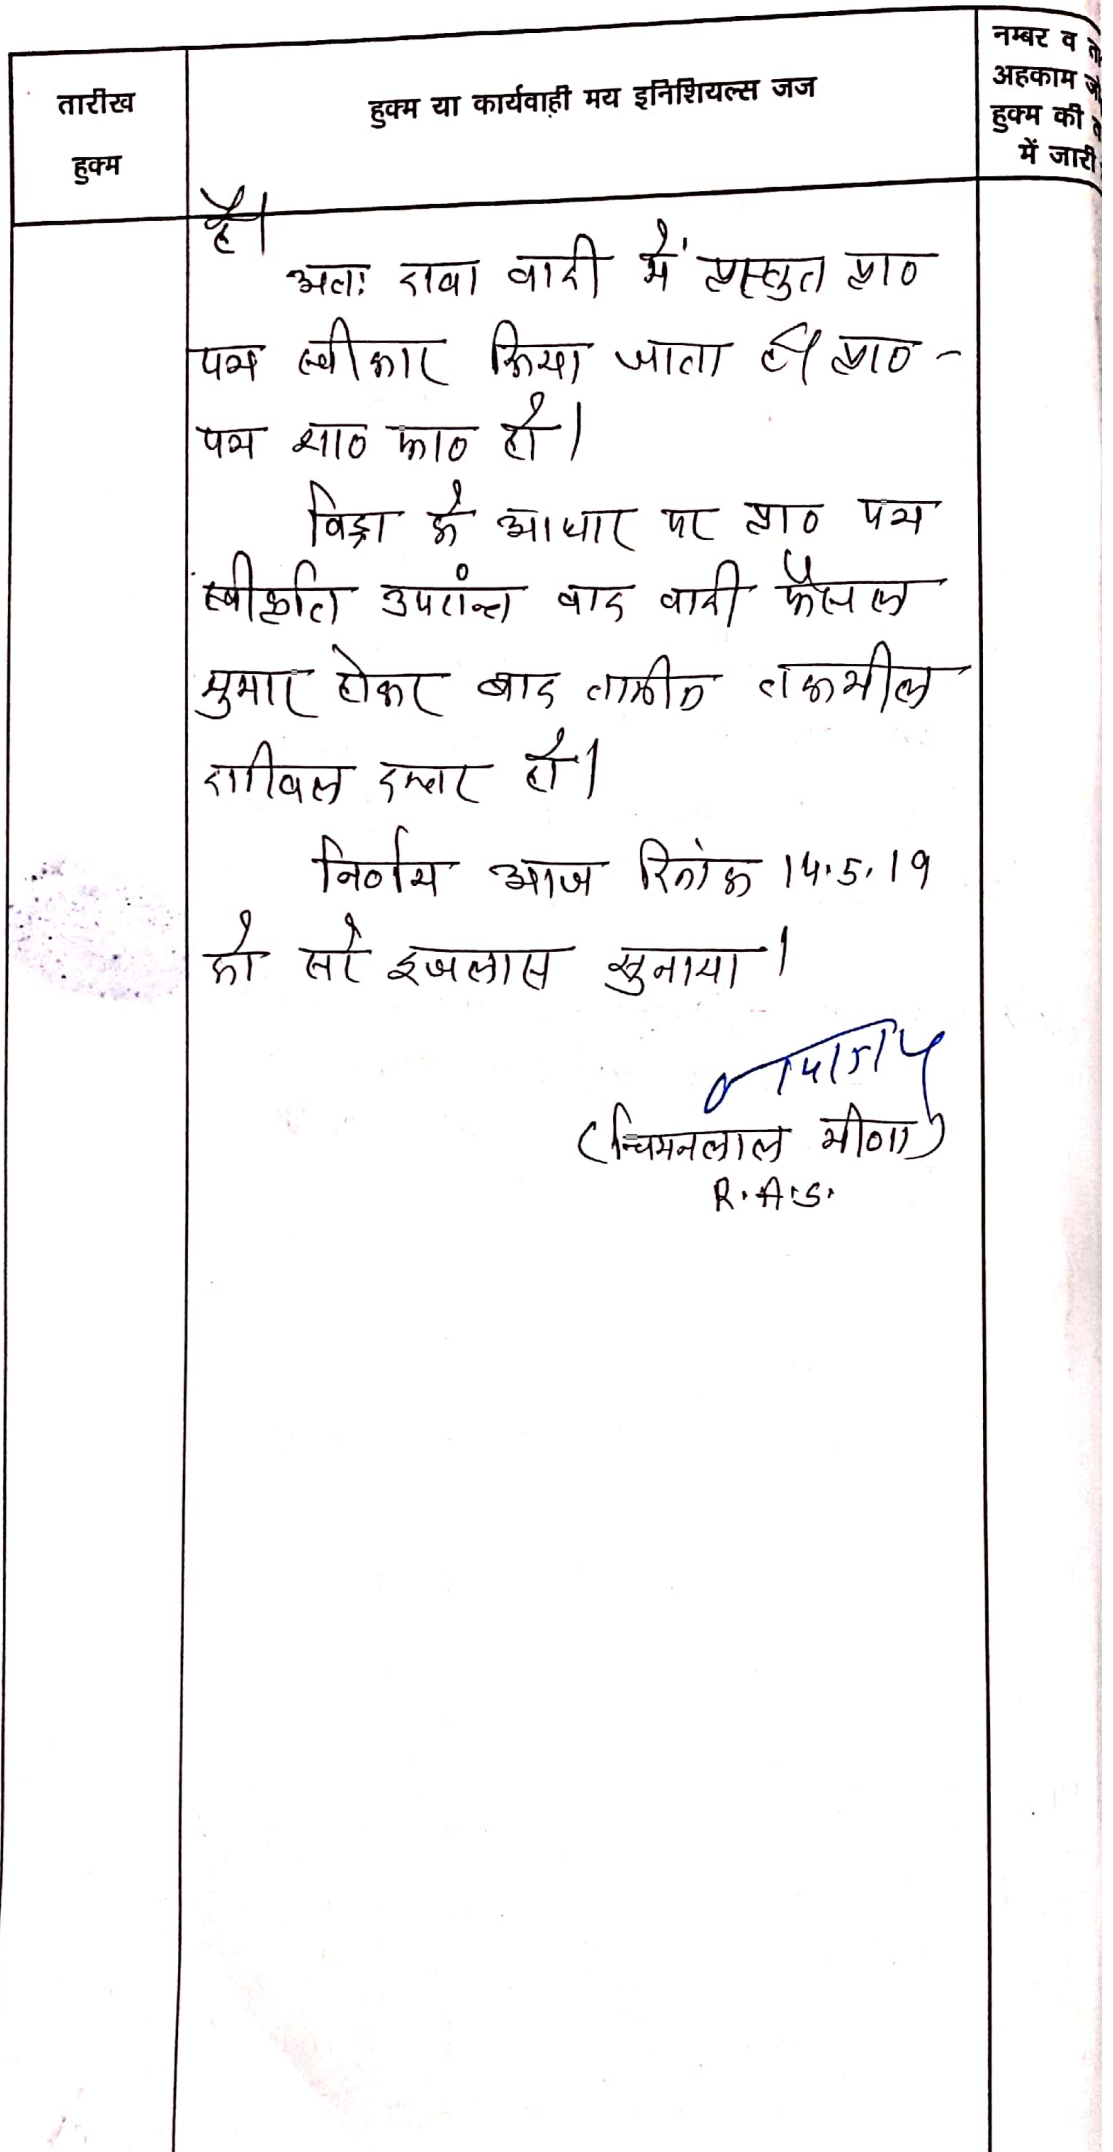 तारीख
हुक्म
हुक्म या कार्यवाही मय इनिशियल्स जज
नम्बर व
अहकाम
हुक्म की
में जारी
है।
अतः दावा वादी में प्रस्तुत प्रा०
पत्र स्वीकार किया जाता है। प्रा० -
पत्र शा० फा० हो।
विड्रा के आधार पर प्रा० पत्र
स्वीकृति उपरांन्त वाद वादी फैसल
सुमार होकर बाद तकमील
दाखिल दफ्तर हो।
निर्णय आज दिनांक 14.5.19
को सरे इजलास सुनाया।
(चिमनलाल मीणा)
R.A.S.